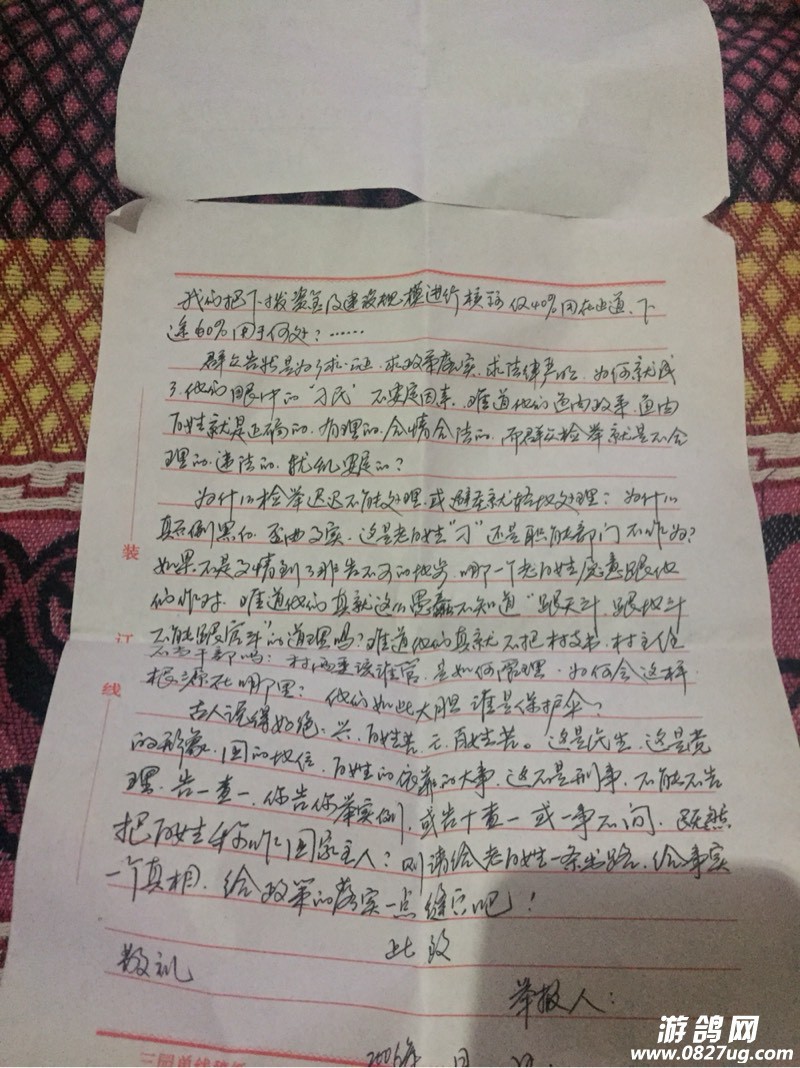 我们把下拨资金及建设规模进行核algorithm仅40%用在此道、下
途60%用于何处?……
群众告状是为了求证.求政策落实.求法律严明.为何就成
了他们眼中的"刁民"不安定因素.难道他们鱼肉政策.鱼肉
百姓就是正确的.有理的.合情合法的.而群众检举就是不合
理的.违法的.扰乱安定的?
为什么检举迟迟不能处理.或避重就轻地处理?为什么
真 倒黑白.歪曲事实.这是老百姓"刁"还是职能部门不作为?
如果不是事情到了非告不可的地步.哪一个老百姓愿意跟他
们作对.难道他们真就这么愚蠢不知道"跟天斗.跟地斗
不能跟官斗"的道理吗?难道他们真就不把村支书.村主任
不当干部吗?村 该谁管.是如何 理.为何会这样
根源在哪里?他们如此大胆谁是保护伞?
古人说得好绝.兴.百姓苦.亡.百姓苦。这是民生.这是党
的形象.国的地位.百姓的依靠的大事.这不是刑事.不能不告
理.告一查一.你告你举实例.或告十查一或一事不问.既然
把百姓称作国家主人?则请给老百姓一条出路.给事实
一个真相.给政策的落实一点缝隙吧!
此致
敬礼
举报人:
2016年 月 日
装
订
线
三园单线稿纸
游鸽网
www.0827ug.com